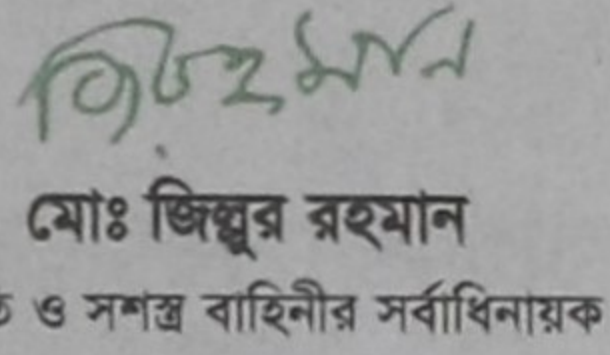 মোঃ জিল্লুর রহমান
ও সশস্ত্র বাহিনীর সর্বাধিনায়ক